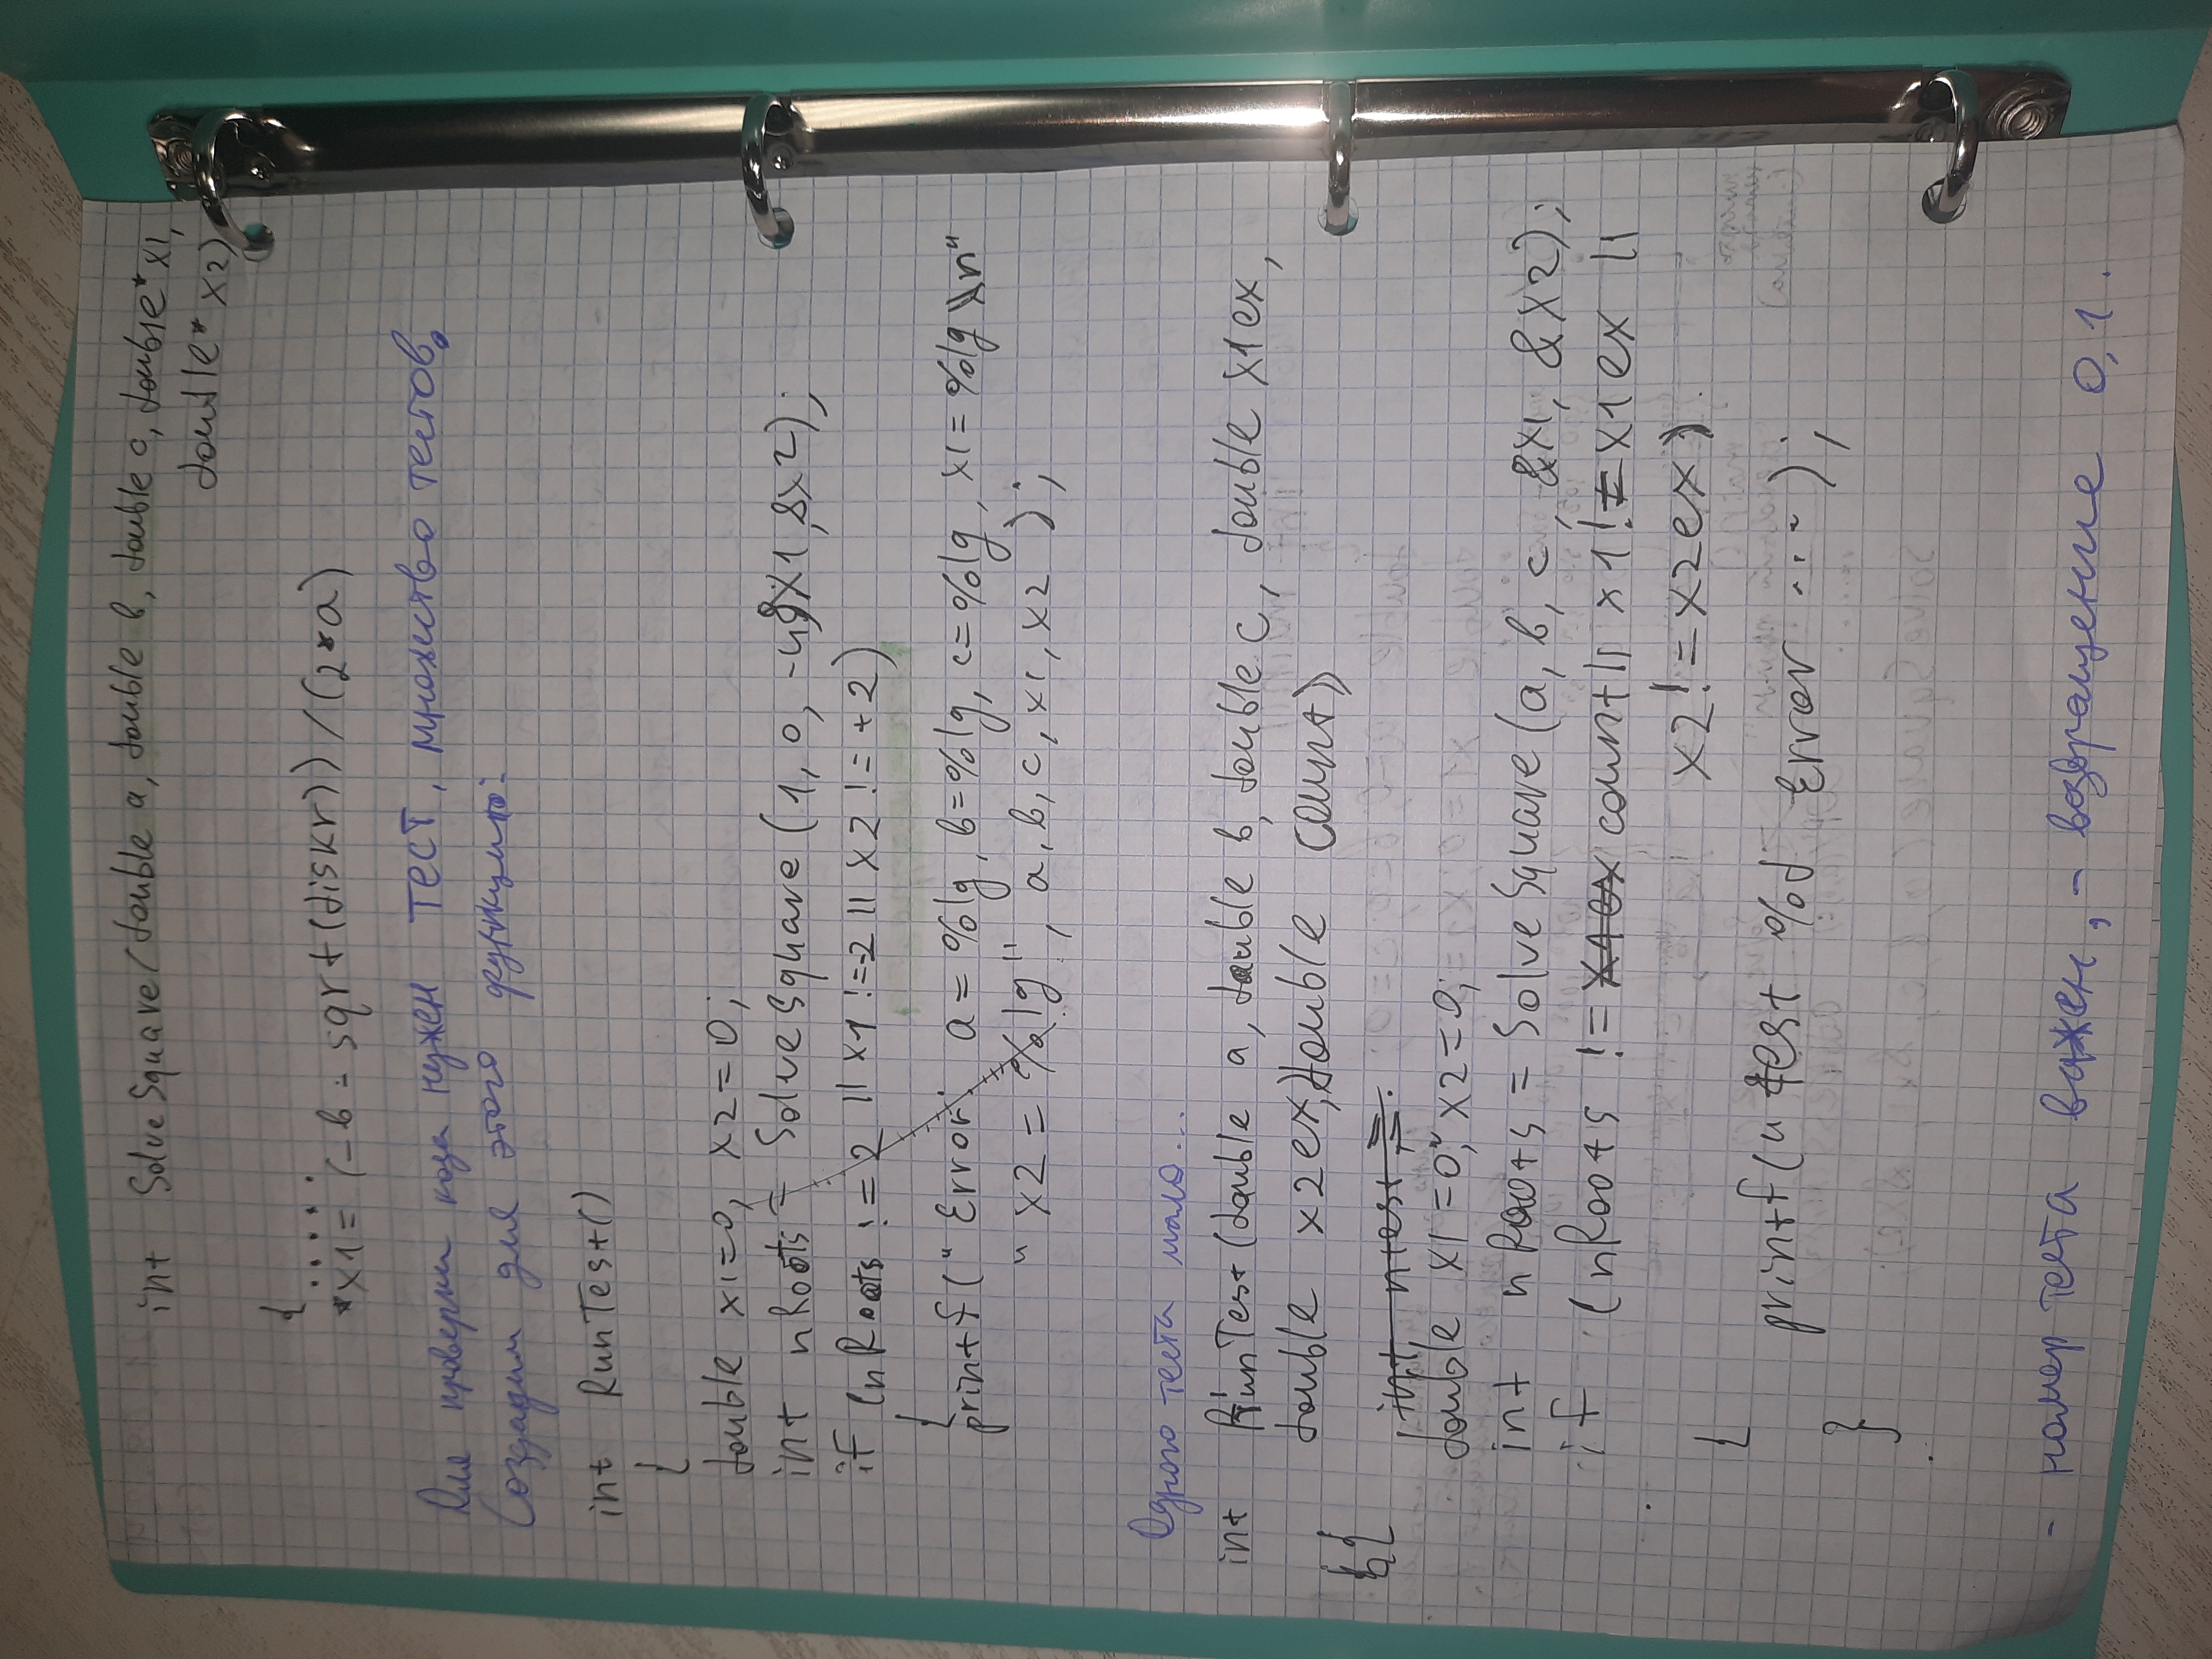 int SolveSquare(double a, double b, double c, double* x1,
double* x2)
{.....
*x1 = (-b - sqrt(diskr))/(2*a)
Для проверки кода нужен ТЕСТ, множество тестов.
Создадим для этого функцию:
int RunTest()
{
double x1=0, x2=0;
int nRoots = SolveSquare (1, 0, -4, &x1, &x2);
if (nRoots != 2 || x1 != -2 || x2 != +2)
{
printf(" Error: a = %lg, b=%lg, c=%lg, x1=%lg \n"
" x2 = %lg", a, b, c, x1, x2 );
Одного теста мало...
int RunTest (double a, double b, double c, double x1ex,
double x2ex, double count)
{
int ntest =
double x1 =0, x2=0;
int nRoots = SolveSquare (a, b, c, &x1, &x2);
if (nRoots != x1ex count || x1 != x1ex ||
x2 != x2ex)
{
printf(" test %d Error ...);
}
- номер теста важен, - возвращение 0,1.